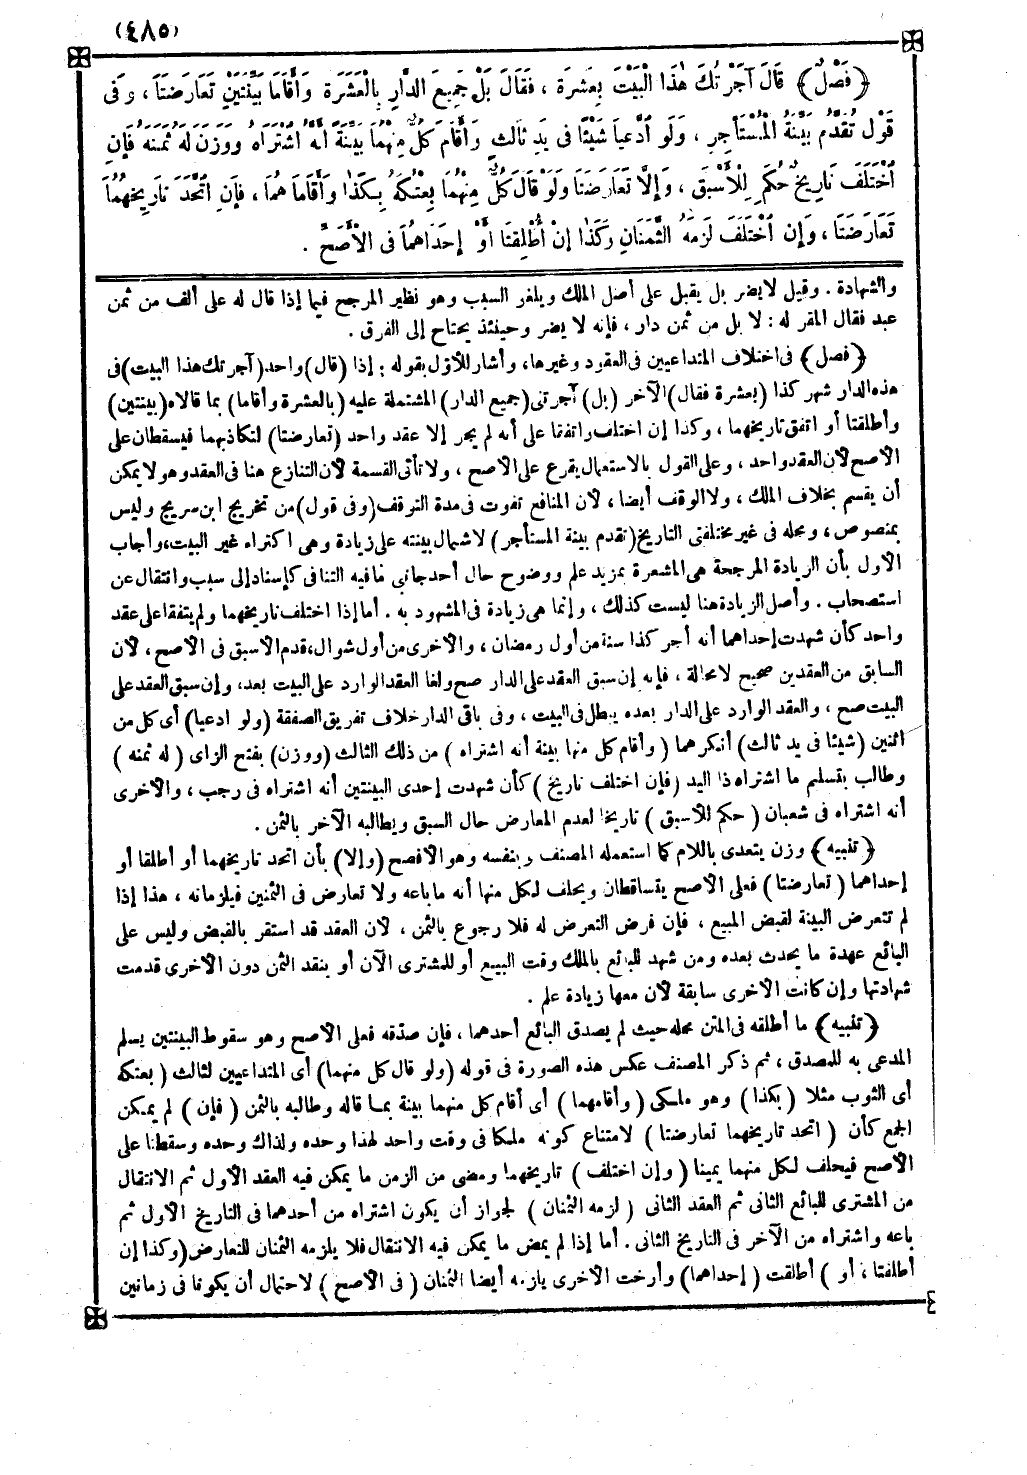 (٤٨٥)
﴿فَصْلٌ﴾ قَالَ آجَرْتُكَ هٰذَا الْبَيْتَ بِعَشرَةٍ ، فَقَالَ بَلْ جَمِيعَ الدَّارِ بِالْعَشَرَةِ وَأَقَامَا بَيِّنَتَيْنِ تَعَارَضَتَا ، وَفِى
قَوْلٍ تُقَدَّمُ بَيِّنَةُ الْمُسْتَأْجِرِ ، وَلَوِ ادَّعَيَا شَيْئًا فِى يَدِ ثَالِثٍ وَأَقَامَ كُلٌّ مِنْهُمَا بَيِّنَةً أَنَّهُ اشْتَرَاهُ وَوَزَنَ لَهُ ثَمَنَهُ فَإِنِ
اخْتَلَفَ تَارِيخٌ حُكِمَ لِلْأَسْبَقِ ، وَإِلَّا تَعَارَضَتَا وَلَوْ قَالَ كُلٌّ مِنْهُمَا بِعْتُكَهُ بِكَذَا وَأَقَامَاهُمَا ، فَإِنِ اتَّحَدَ تَارِيخُهُمَا
تَعَارَضَتَا ، وَإِنِ اخْتَلَفَ لَزِمَهُ الثَّمَنَانِ وَكَذَا إِنْ أُطْلِقَتَا أَوْ إِحْدَاهُمَا فِى الْأَصَحِّ .
والشهادة . وقيل لايضر بل يقبل على أصل الملك ويلغو السبب وهو نظير المرجح فيما إذا قال له على ألف من ثمن
عبد فقال المقر له : لا بل من ثمن دار ، فإنه لا يضر وحينئذ يحتاج إلى الفرق .
﴿فصل﴾ فى اختلاف المتداعيين فى العقود وغيرها، وأشار للأول بقوله : إذا (قال) واحد (آجرتك هذا البيت) فى
هذه الدار شهر كذا (بعشرة فقال) الآخر (بل) آجرتنى (جميع الدار) المشتملة عليه (بالعشرة وأقاما) بما قالاه (بينتين)
وأطلقتا أو اتفق تاريخهما ، وكذا إن اختلف واتفقا على أنه لم يجر إلا عقد واحد (تعارضتا) لتكاذبهما فيسقطان على
الأصح لأن العقد واحد ، وعلى القول بالاستعمال يقرع على الأصح ، ولا تأتى القسمة لأن التنازع هنا فى العقد وهو لا يمكن
أن يقسم بخلاف الملك ، ولا الوقف أيضا ، لأن المنافع تفوت فى مدة التوقف (وفى قول) من تخريج ابن سريج وليس
بمنصوص ، ومحله فى غير مختلفتى التاريخ (تقدم بينة المستأجر) لاشتمال بينته على زيادة وهى اكتراء غير البيت، وأجاب
الأول بأن الزيادة المرجحة هى المشعرة بمزيد علم ووضوح حال أحد جانبى مافيه التنافى كإسناد إلى سبب وانتقال عن
استصحاب . وأصل الزيادة هنا ليست كذلك ، وإنما هى زيادة فى المشهود به . أما إذا اختلف تاريخهما ولم يتفقا على عقد
واحد كأن شهدت إحداهما أنه أجر كذا سنة من أول رمضان ، والأخرى من أول شوال، قدم الأسبق فى الأصح ، لأن
السابق من العقدين صحيح لا محالة ، فإنه إن سبق العقد على الدار صح ولغا العقد الوارد على البيت بعد، وإن سبق العقد على
البيت صح ، والعقد الوارد على الدار بعده يبطل فى البيت ، وفى باقى الدار خلاف تفريق الصفقة (ولو ادعيا) أى كل من
اثنين (شيئا فى يد ثالث) أنكرهما (وأقام كل منهما بينة أنه اشتراه) من ذلك الثالث (ووزن) بفتح الزاى (له ثمنه)
وطالب بتسليم ما اشتراه ذا اليد (فإن اختلف تاريخ) كأن شهدت إحدى البينتين أنه اشتراه فى رجب ، والأخرى
أنه اشتراه فى شعبان (حكم للأسبق) تاريخا لعدم المعارض حال السبق ويطالبه الآخر بالثمن .
﴿تنبيه﴾ وزن يتعدى باللام كما استعمله المصنف وبنفسه وهو الأفصح (وإلا) بأن اتحد تاريخهما أو أطلقا أو
إحداهما (تعارضتا) فعلى الأصح يتساقطان ويحلف لكل منهما أنه ماباعه ولا تعارض فى الثمنين فيلزمانه ، هذا إذا
لم تتعرض البينة لقبض المبيع ، فإن فرض التعرض له فلا رجوع بالثمن ، لأن العقد قد استقر بالقبض وليس على
البائع عهدة ما يحدث بعده ومن شهد للبائع بالملك وقت البيع أو للمشترى الآن أو بنقد الثمن دون الأخرى قدمت
شهادتها وإن كانت الأخرى سابقة لأن معها زيادة علم .
﴿تنبيه﴾ ما أطلقه فى المتن محله حيث لم يصدق البائع أحدهما ، فإن صدّقه فعلى الأصح وهو سقوط البينتين يسلم
المدعى به للمصدق ، ثم ذكر المصنف عكس هذه الصورة فى قوله (ولو قال كل منهما) أى المتداعيين لثالث (بعتكه
أى الثوب مثلا (بكذا) وهو ملكى (وأقامهما) أى أقام كل منهما بينة بما قاله وطالبه بالثمن (فإن) لم يمكن
الجمع كأن (اتحد تاريخهما تعارضتا) لامتناع كونه ملكا فى وقت واحد لهذا وحده ولذاك وحده وسقطتا على
الأصح فيحلف لكل منهما يمينا (وإن اختلف) تاريخهما ومضى من الزمن ما يمكن فيه العقد الأول ثم الانتقال
من المشترى للبائع الثانى ثم العقد الثانى (لزمه الثمنان) لجواز أن يكون اشتراه من أحدهما فى التاريخ الأول ثم
باعه واشتراه من الآخر فى التاريخ الثانى . أما إذا لم يمض ما يمكن فيه الانتقال فلا يلزمه الثمنان للتعارض (وكذا إن
أطلقتا ، أو) أطلقت (إحداهما) وأرخت الأخرى يلزمه أيضا الثمنان (فى الأصح) لاحتمال أن يكونا فى زمانين